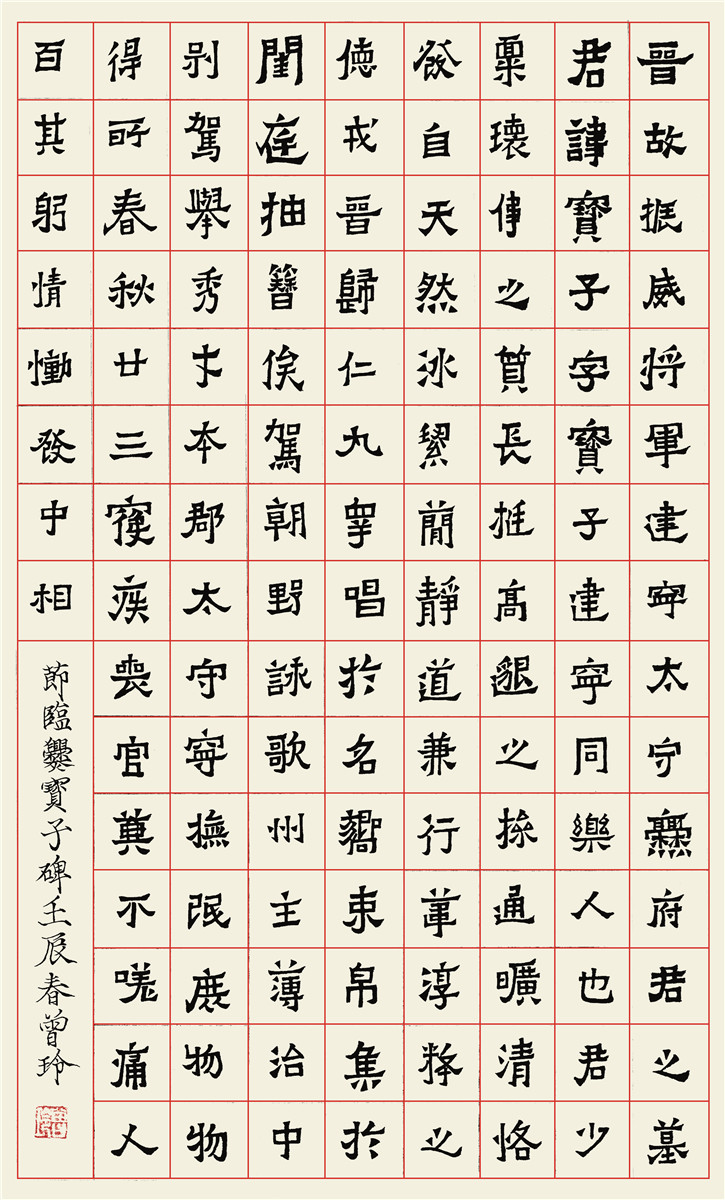 晉故振威将軍建寧太守爨府君之墓
君諱寶子字寶子建寧同樂人也君少
稟瓌偉之質長挺高邈之操通曠清恪
發自天然冰絜簡靜道兼行葦淳粹之
德戎晉歸仁九皋唱於名嚮束帛集於
閨庭抽簪俟駕朝野詠歌州主薄治中
別駕舉秀才本郡太守寧撫氓庶物物
得所春秋廿三寑疾喪官莫不嗟痛人
百其躬情慟發中相
節臨爨寶子碑壬辰春曾玲